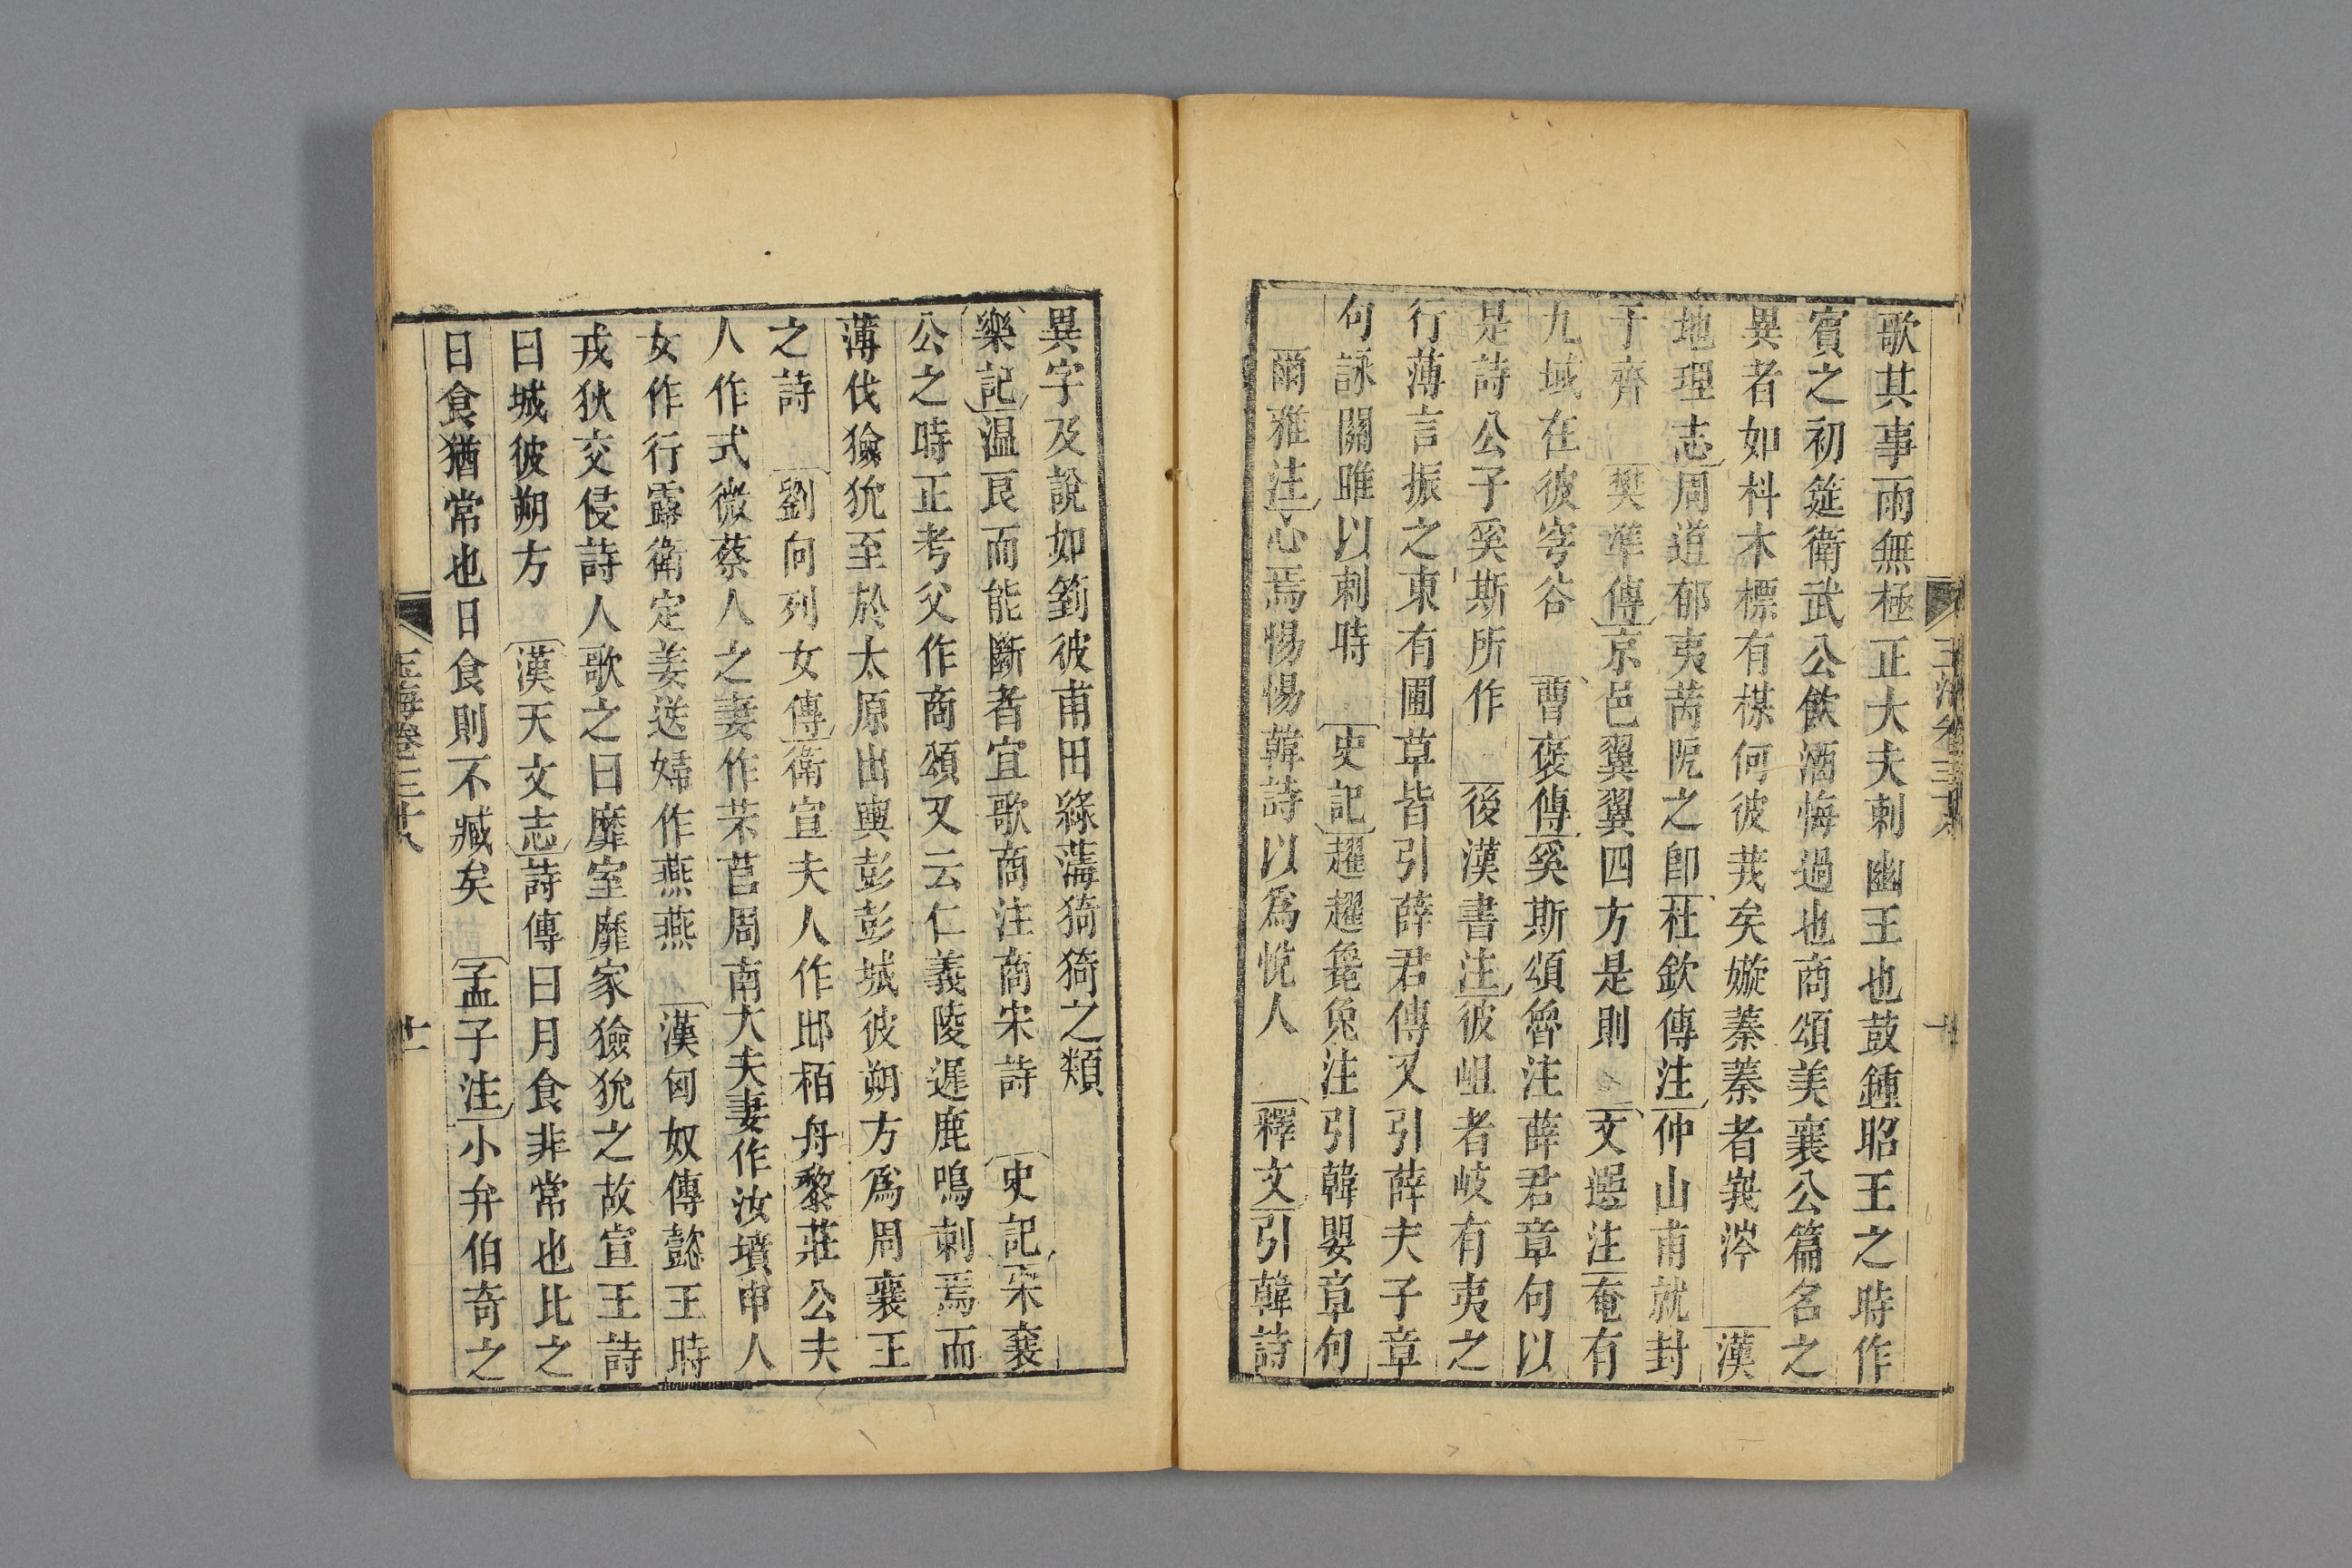 歌其事雨無極正大夫刺幽王也鼓鍾昭王之時作
賓之初筵衞武公飲酒悔過也商頌美襄公篇名之
異者如朻木摽有楳何彼茙矣嫙蓁蓁者莪溱 漢
地理志周道郁夷芮阮之卽杜欽傳注仲山甫就封
于齊 樊準傳京邑翼翼四方是則 文選注奄有
九域在彼穹谷 曹褒傳奚斯頌魯注薛君章句以
是詩公子奚斯所作 後漢書注彼岨者岐有夷之
行薄言振之東有圃草皆引薛君傳又引薛夫子章
句詠關雎以刺時 史記趯趯毚兔注引韓嬰章句
爾雅注心焉惕惕韓詩以爲悅人 釋文引韓詩
異字及說如箌彼甫田綠薄猗猗之類
樂記温良而能斷者宜歌商注商宋詩 史記宋襄
公之時正考父作商頌又云仁義陵遲鹿鳴刺焉而
薄伐獫狁至於太原出輿彭彭城彼朔方爲周襄王
之詩 劉向列女傳衞宣夫人作邶栢舟黎莊公夫
人作式微蔡人之妻作芣苢周南大夫妻作汝墳申人
女作行露衞定姜送婦作燕燕 漢匈奴傳懿王時
戎狄交侵詩人歌之曰靡室靡家獫狁之故宣王詩
曰城彼朔方 漢天文志詩傳曰月食非常也比之
日食猶常也日食則不臧矣 孟子注小弁伯奇之
玉海卷三十八 廿一